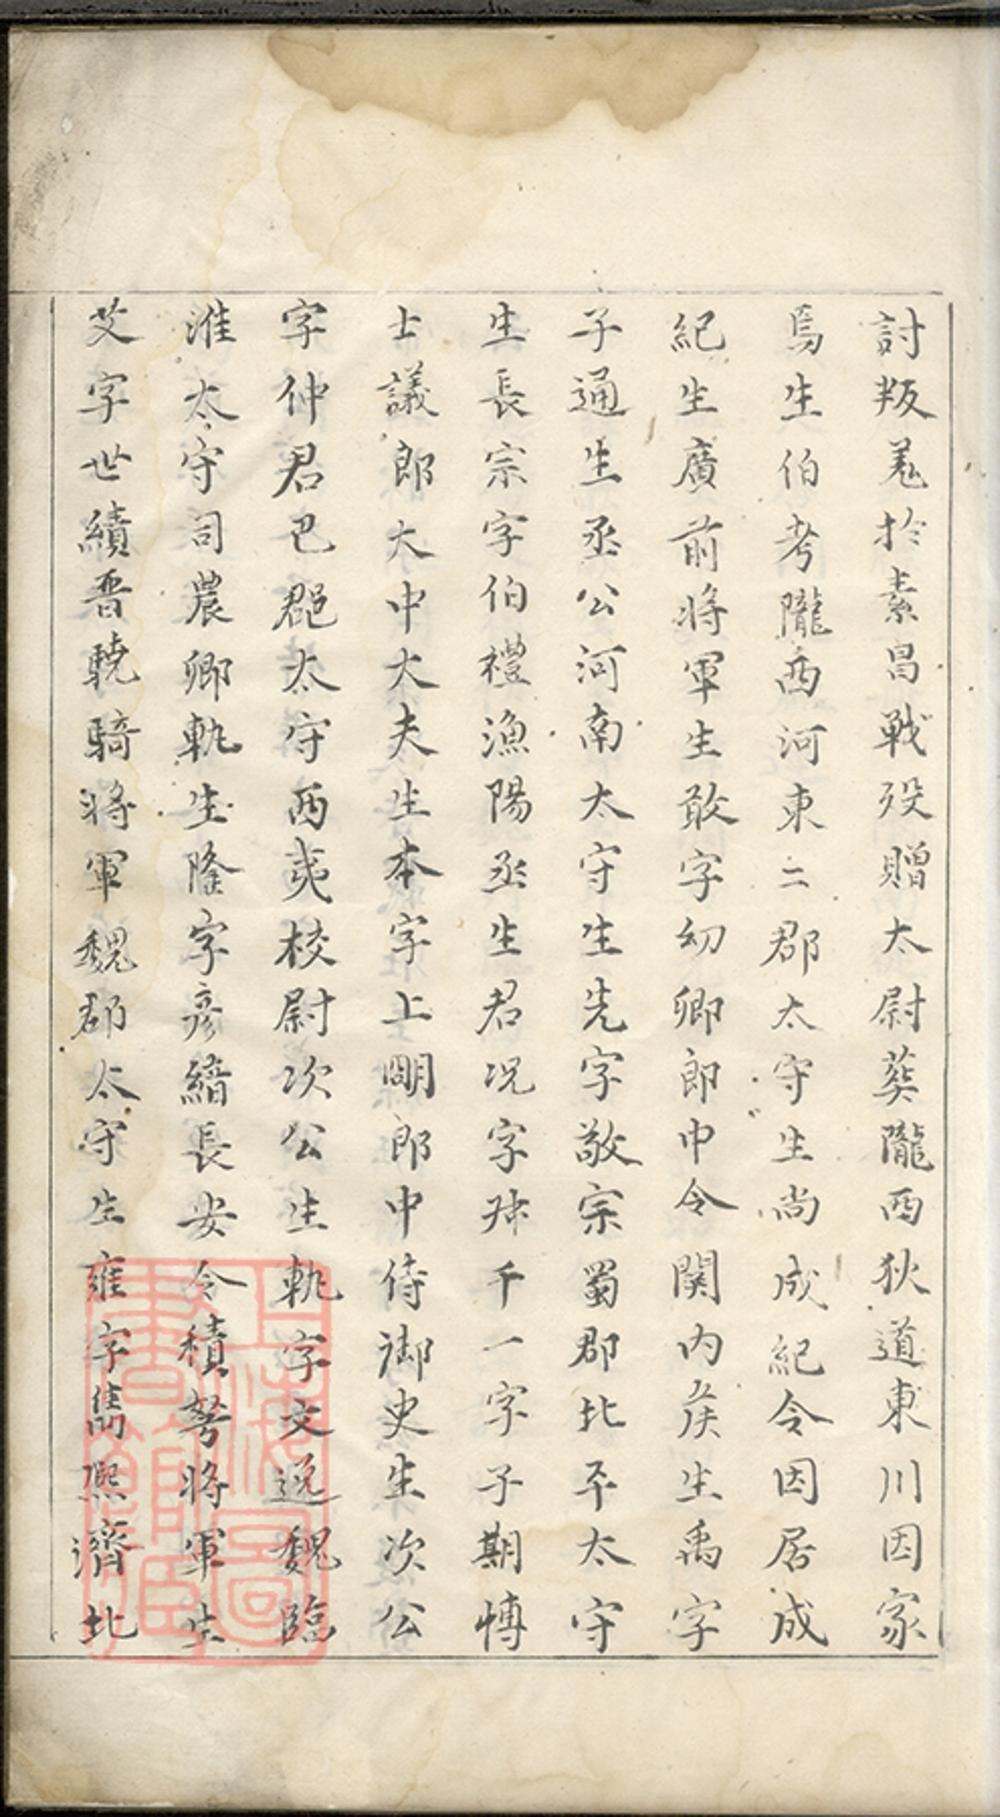 討叛羌於素昌戰歿贈太尉葬隴西狄道東川因家
焉生伯考隴西河東二郡太守生尚成紀令因居成
紀生廣前將軍生敢字幼卿郎中令關内侯生禹字
子通生丞公河南太守生先字敬宗蜀郡北平太守
生長宗字伯禮漁陽丞生君况字叔干一字子期博
士議郎大中大夫生本字上明郎中侍御史生次公
字仲君巴郡太守西夷校尉次公生軌字文逸魏臨
淮太守司農卿軌生隆字彦緇長安令積弩將軍生
艾字世績晋驍騎將軍魏郡太守生雍字雋熙濟北
上海圖書館藏